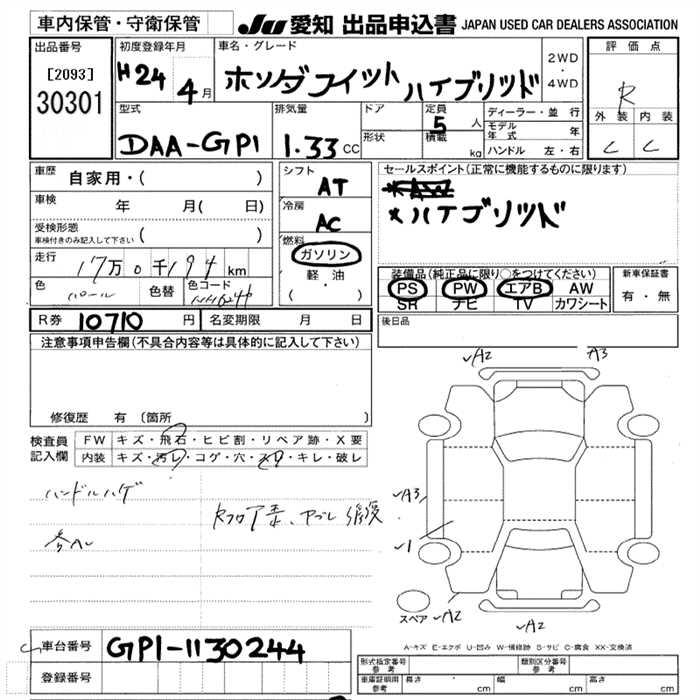 車内保管・守衛保管
JU 愛知 出品申込書 JAPAN USED CAR DEALERS ASSOCIATION
出品番号
[2093]
30301
初度登録年月
H24 4月
車名・グレード
ホンダフィット ハイブリッド
2WD
・
4WD
評価点
R
外装 内装
C C
型式
DAA-GP1
排気量
1.33 CC
ドア
形状
定員
5人
積載
kg
ディーラー・並行
モデル年式 年
ハンドル 左・右
車歴
自家用・( )
車検
年 月( 日)
受検形態
車検付きのみ記入して下さい ( )
走行
17万0千194km
色
パール
色替
色コード
シフト
AT
冷房
AC
燃料
ガソリン
軽油
( ・ )
セールスポイント(正常に機能するものに限ります)
*AW
*ハイブリッド
装備品(純正品に限り○をつけてください)
PS PW エアB AW
SR ナビ TV カワシート
新車保証書
有・無
R券 10710 円
名変期限 月 日
後日品
注意事項申告欄(不具合内容等は具体的に記入して下さい)
修復歴 有 〔箇所
検査員
記入欄
FW キズ・飛石・ヒビ割・リペア跡・X要
内装 キズ・汚レ・コゲ・穴・スレ・キレ・破レ
ハンドルハゲ
√A2
A3
√A3
√1
スペア
√A2
√A2
A-キズ E-エクボ U-凹み W-補修跡 S-サビ C-腐食 XX-交換済
車台番号
GP1-1130244
登録番号
形式指定番号
参考
類別区分番号
参考
車庫証明用
参考
長さ cm
幅 cm
高さ cm